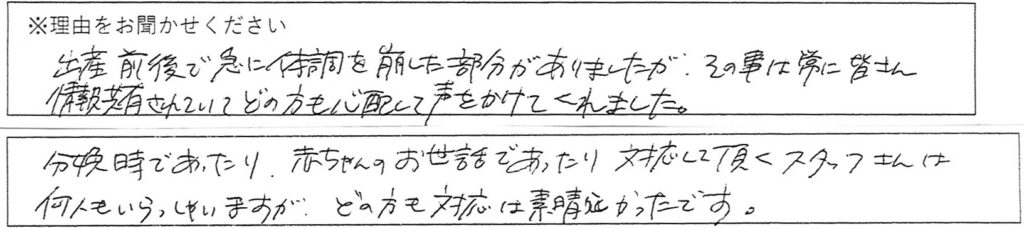 ※理由をお聞かせください
出産前後で急に体調を崩した部分がありましたが、その事は常に皆さん
情報共有されていてどの方も心配して声をかけてくれました。
分娩時であったり、赤ちゃんのお世話であったり対応して頂くスタッフさんは
何人もいらっしゃいますが、どの方も対応は素晴しかったです。